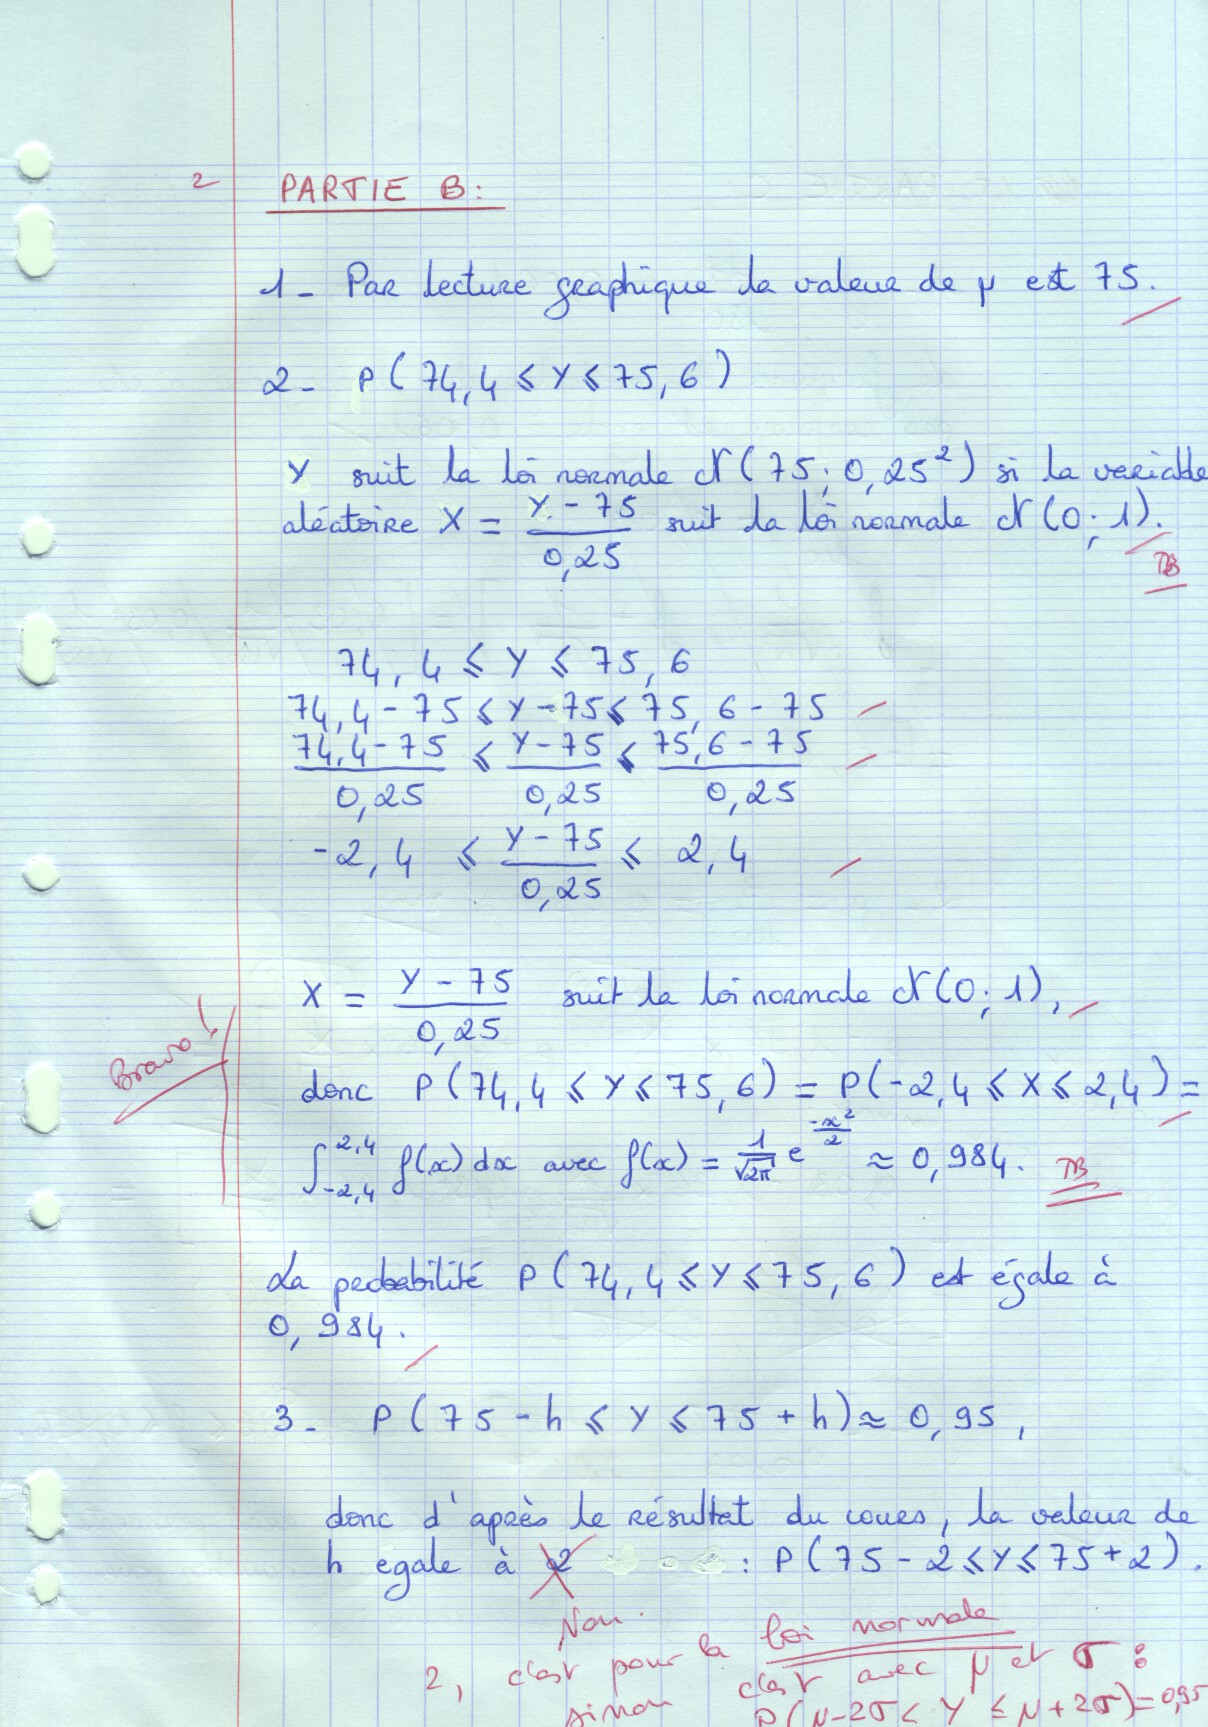 2
PARTIE B:
1- Par lecture graphique la valeur de μ est 75.
2- P(74,4 ⩽ Y ⩽ 75,6)
Y suit la loi normale N(75; 0,25²) si la variable
aléatoire X = (Y - 75)/0,25 suit la loi normale N(0; 1).
TB
74,4 ⩽ Y ⩽ 75,6
74,4 - 75 ⩽ Y - 75 ⩽ 75,6 - 75
(74,4 - 75)/0,25 ⩽ (Y - 75)/0,25 ⩽ (75,6 - 75)/0,25
-2,4 ⩽ (Y - 75)/0,25 ⩽ 2,4
X = (Y - 75)/0,25 suit la loi normale N(0; 1),
Bravo!
donc P(74,4 ⩽ Y ⩽ 75,6) = P(-2,4 ⩽ X ⩽ 2,4) =
∫_{-2,4}^{2,4} f(x)dx avec f(x) = 1/√2π e^{-x²/2} ≈ 0,984. TB
La probabilité P(74,4 ⩽ Y ⩽ 75,6) est égale à
0,984.
3- P(75 - h ⩽ Y ⩽ 75 + h) ≈ 0,95,
donc d'après le résultat du cours, la valeur de
h egale à 2 : P(75 - 2 ⩽ Y ⩽ 75 + 2).
Non.
2, c'est pour la loi normale
sinon c'est avec μ et σ :
P(μ-2σ < Y ⩽ μ+2σ) = 0,95